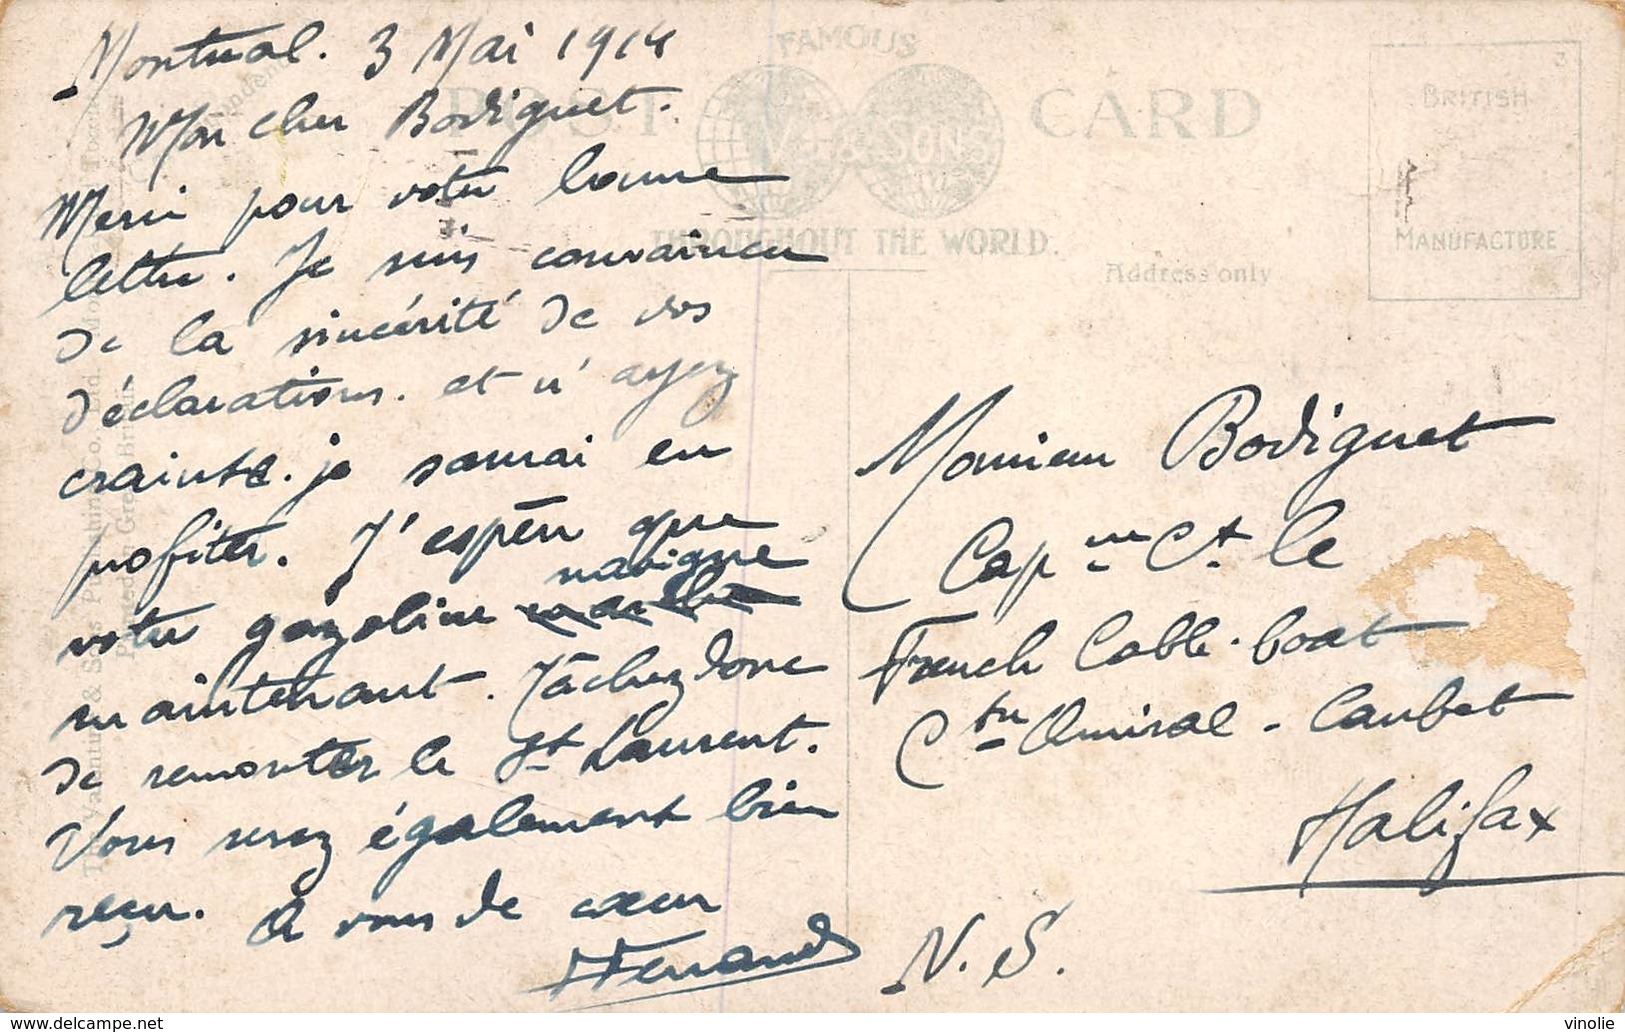 Montreal. 3 Mai 1914
Mon cher Bodiguet.
Merci pour votre bonne
lettre. Je suis convaincu
de la sincérité de vos
déclarations. et n'ayez
crainte. je saurai en
profiter. J'espère que
navigue
votre gazoline
maintenant. Tâchez donc
de remonter le St Laurent.
Vous serez également bien
reçu. A vous de cœur
Fernand
FAMOUS
POST CARD
& SONS
THROUGHOUT THE WORLD.
Address only
BRITISH
MANUFACTURE
Monsieur Bodiguet
Cap ne Ct le
French Cable-boat
Contre Amiral-Caubet
Halifax
N. S.
vinolie